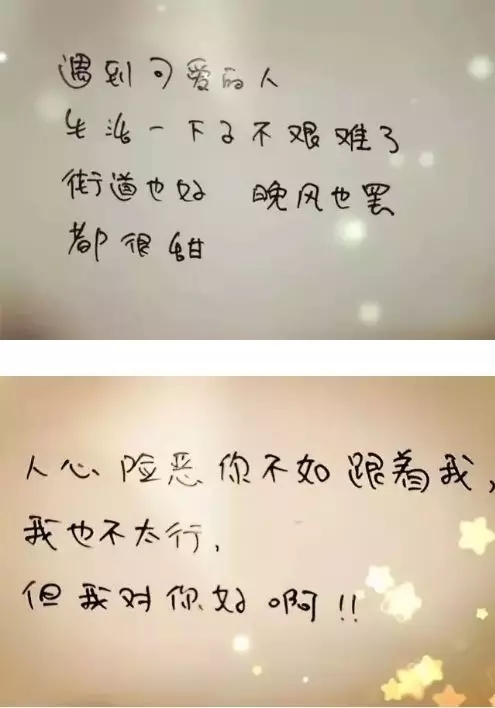 遇到可爱的人
生活一下子不艰难了
街道也好 晚风也罢
都很甜
人心险恶你不如跟着我,
我也不太行,
但我对你好啊!!